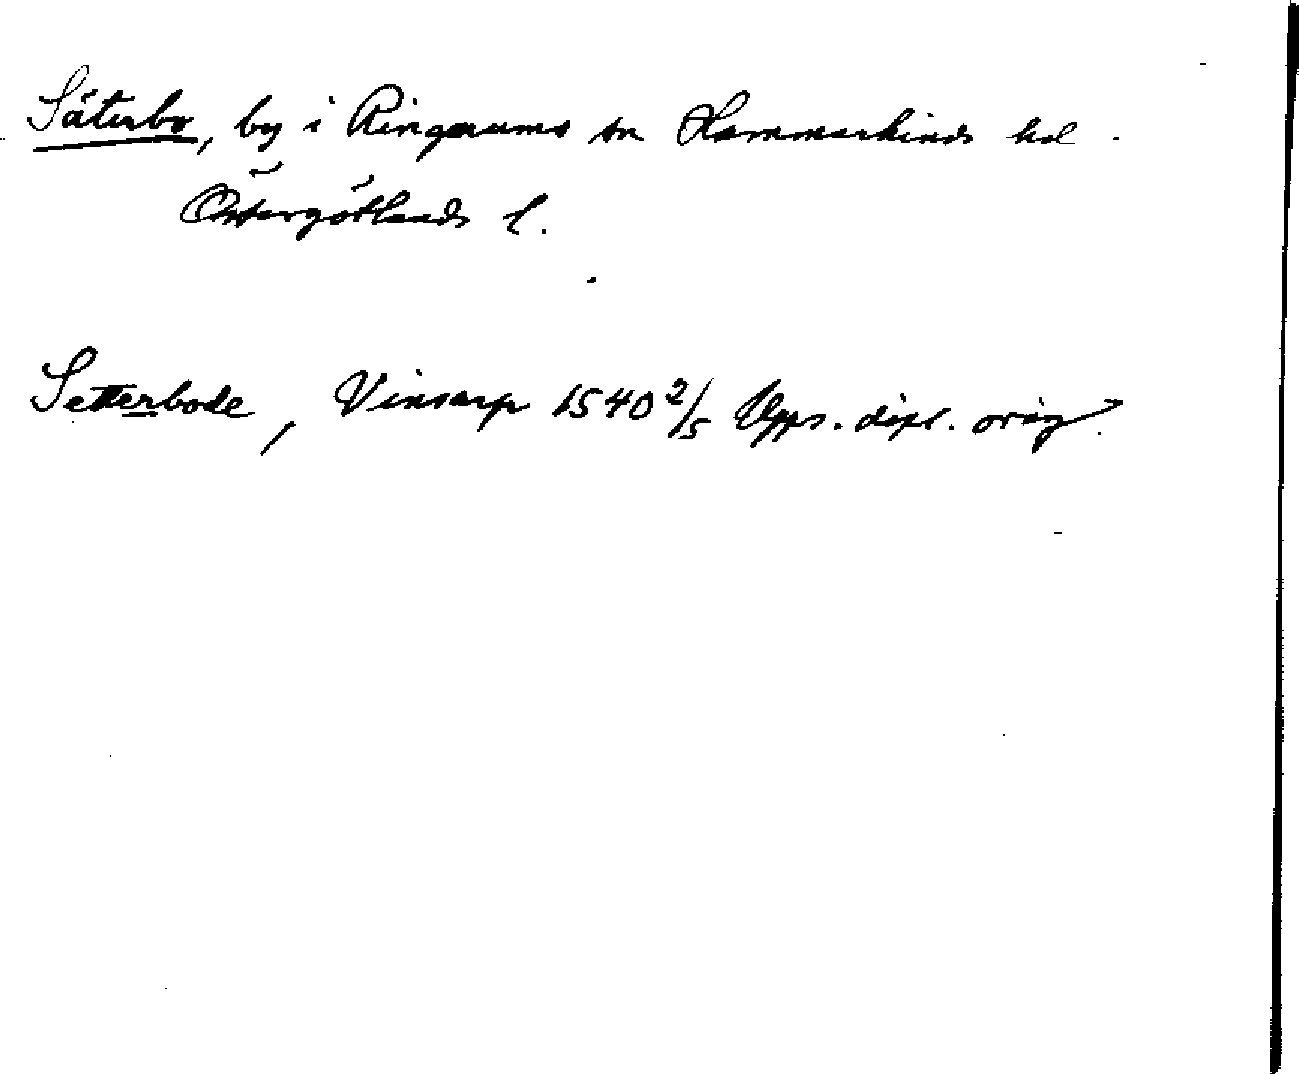 Säterbo, by i Ringarums sn Hammarkinds hd.
Östergötlands l.
Setterbode, Vinsarp 1540 2/5 Upps. dipl. orig.